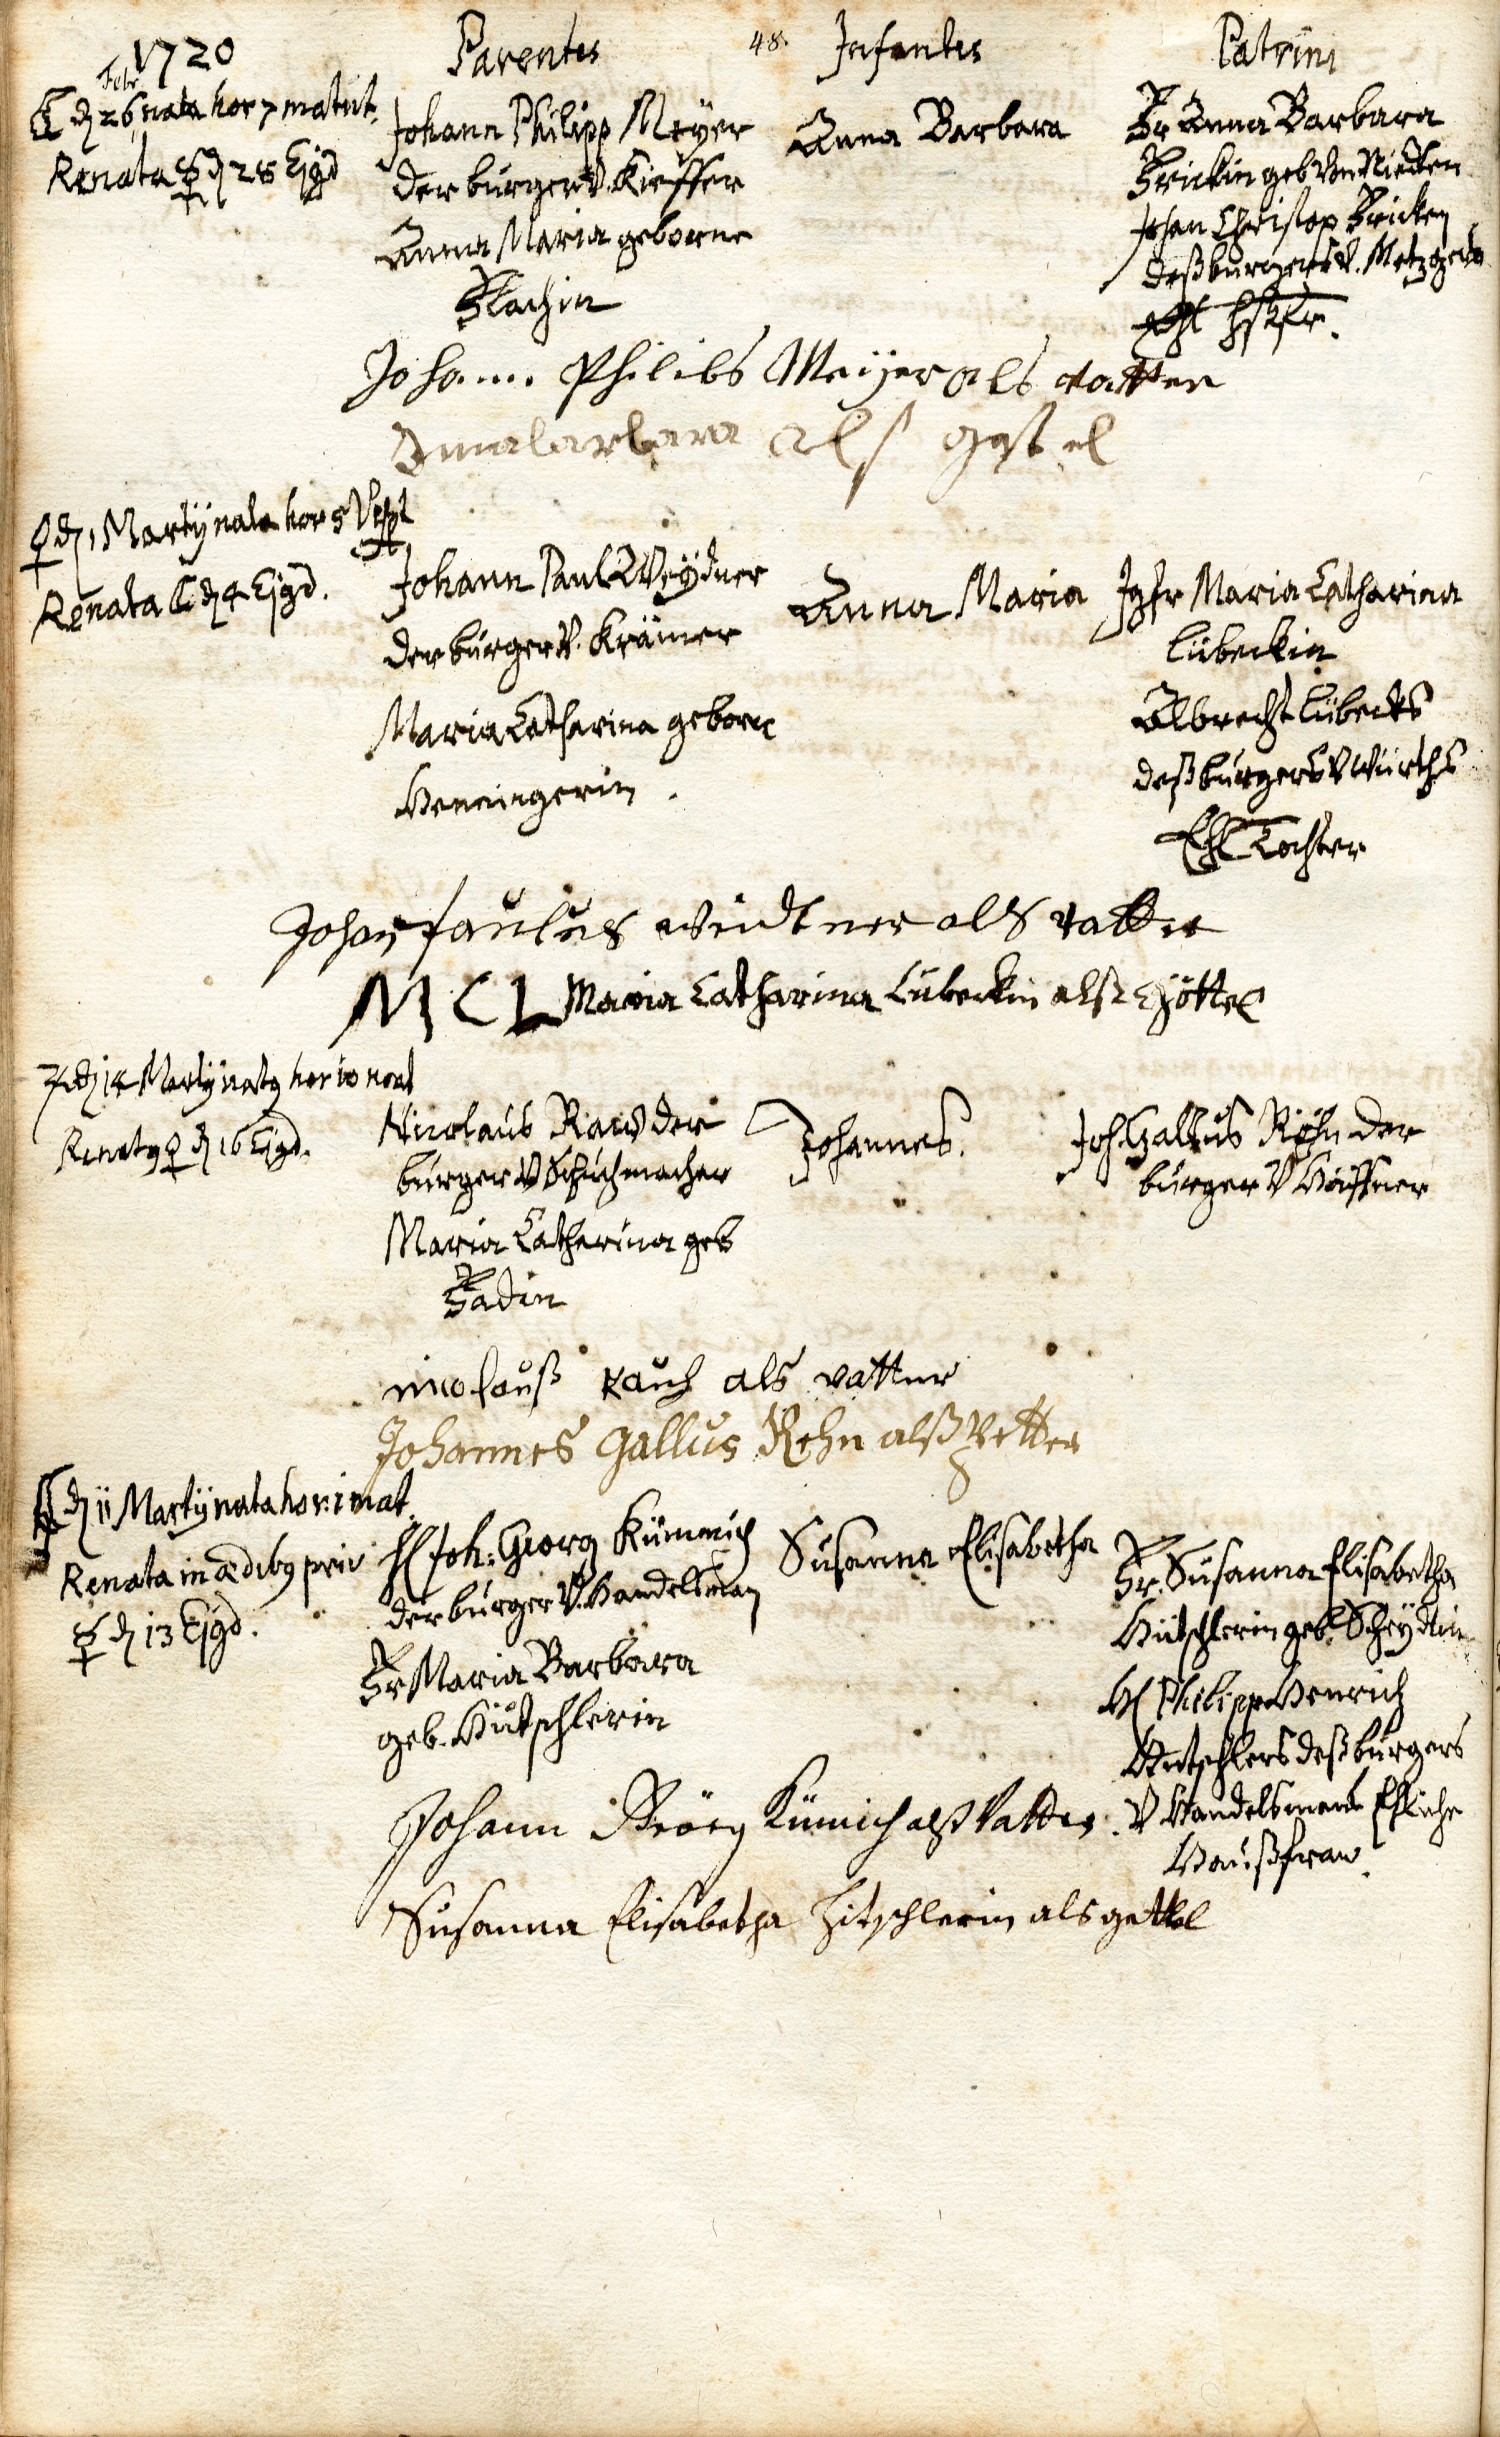 1720
Parentes
48.
Infantes
Patrini
Febr
☾ d 26 nata hor 7 matut.
Renata ☿ d 28 Ejgd
Johann Philipp Meÿer
der burger v. Kieffer
Anna Maria geborne
Flachin
Anna Barbara
Fr Anna Barbara
Frickin geb von Nieden
Johan Christop Fricken
deß burgers v. Metzgers
Ehl Hßfr.
Johann Philibs Meijer als vatter
als
♀ d 1 Martÿ nata hor 5 Vesp
Renata ☾ d 4 Ejgd.
Johann Paul Weÿdner
der burger v. Krämer
Maria Catharina geborne
Henningerin.
Anna Maria
Jgfr Maria Catharina
Lübeckin
Albrecht Lübecks
deß burgers v würths
Ehl Tochter
Johan paulus weidtner als vatter
M C L Maria Catharina Lübeckin alß Göttel
♃ d 14 Martÿ natq hor 10 noct
Renatq ♀ d 16 Ejgd.
Nicolaus Rauh der
burger v Schuchmacher
Maria Catharina geb
Fadin
Johannes.
Joh. Gallus Röhn der
burger v Häffner
nicolauß Rauch als vatter
Johannes Gallus Rehn alß Petter
d 11 Martÿ nata hor: 1 mat.
Renata in ædibq priv
☿ d 13 Ejgd.
H Joh: Georg Kümmich
der burger v. Handelsman
Fr Maria Barbara
geb. Hütschlerin
Susanna Elisabetha
Fr. Susanna Elisabetha
Hütschlerin geb. Scheÿdtin
H Philipp Henrich
Hutschlers deß burgers
v Handelsmans Ehliche
Haußfraw.
Johann Georg Kümich alß Vatter.
Susanna Elisabetha Hitschlerin als gettel